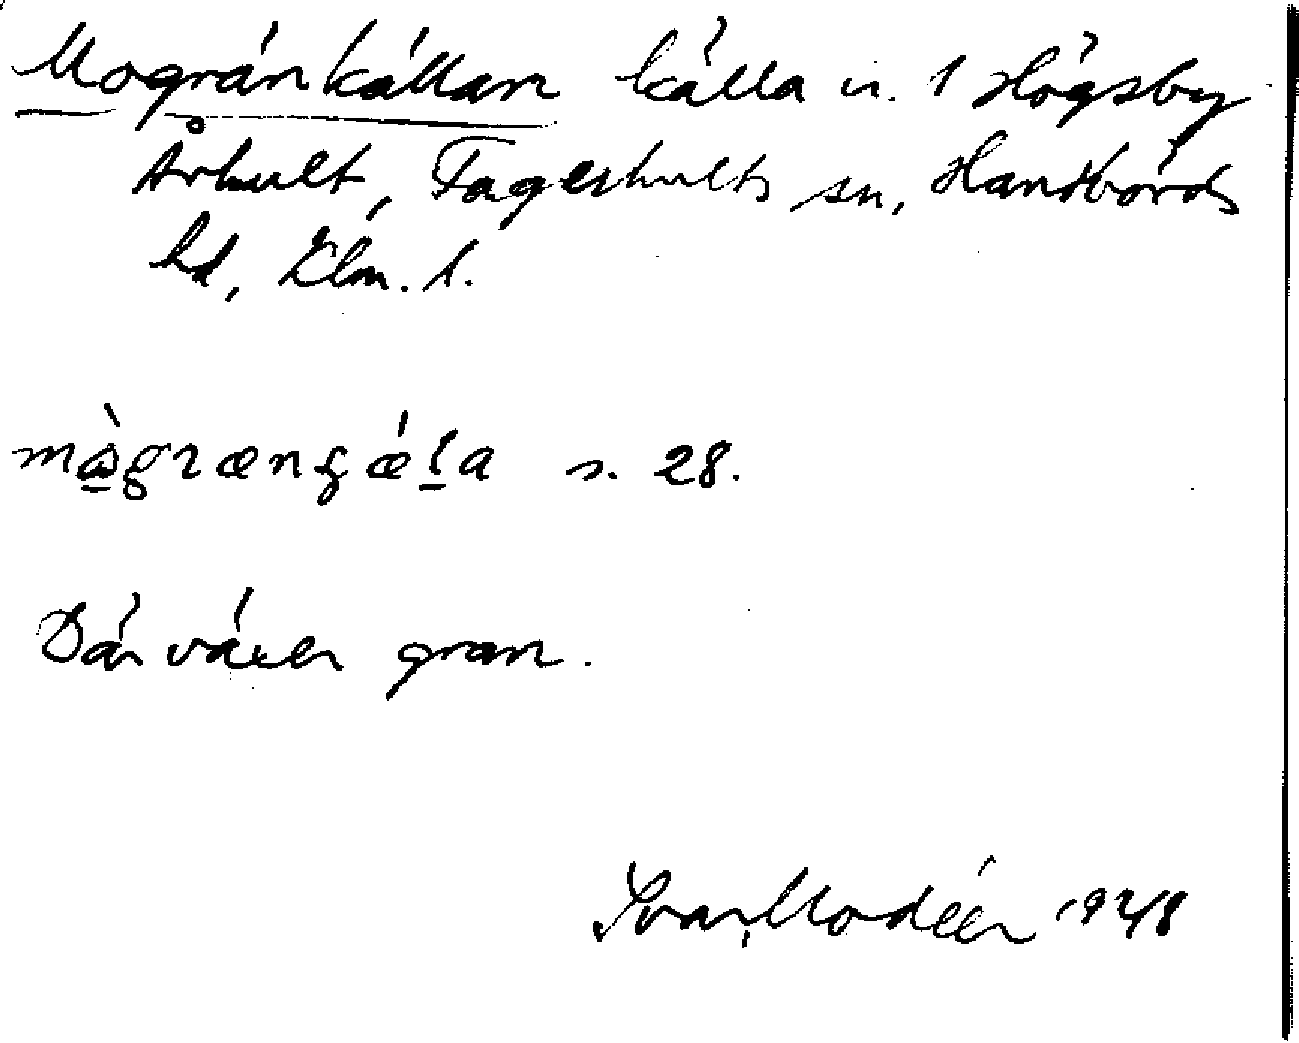 Mogränkällan källa n. 1 Högsby
Århult, Fagerhults sn, Handbörds
hd, Klm. l.
mògrænɕǽla s. 28.
Där växer gran.
Ivar Modéer 1928